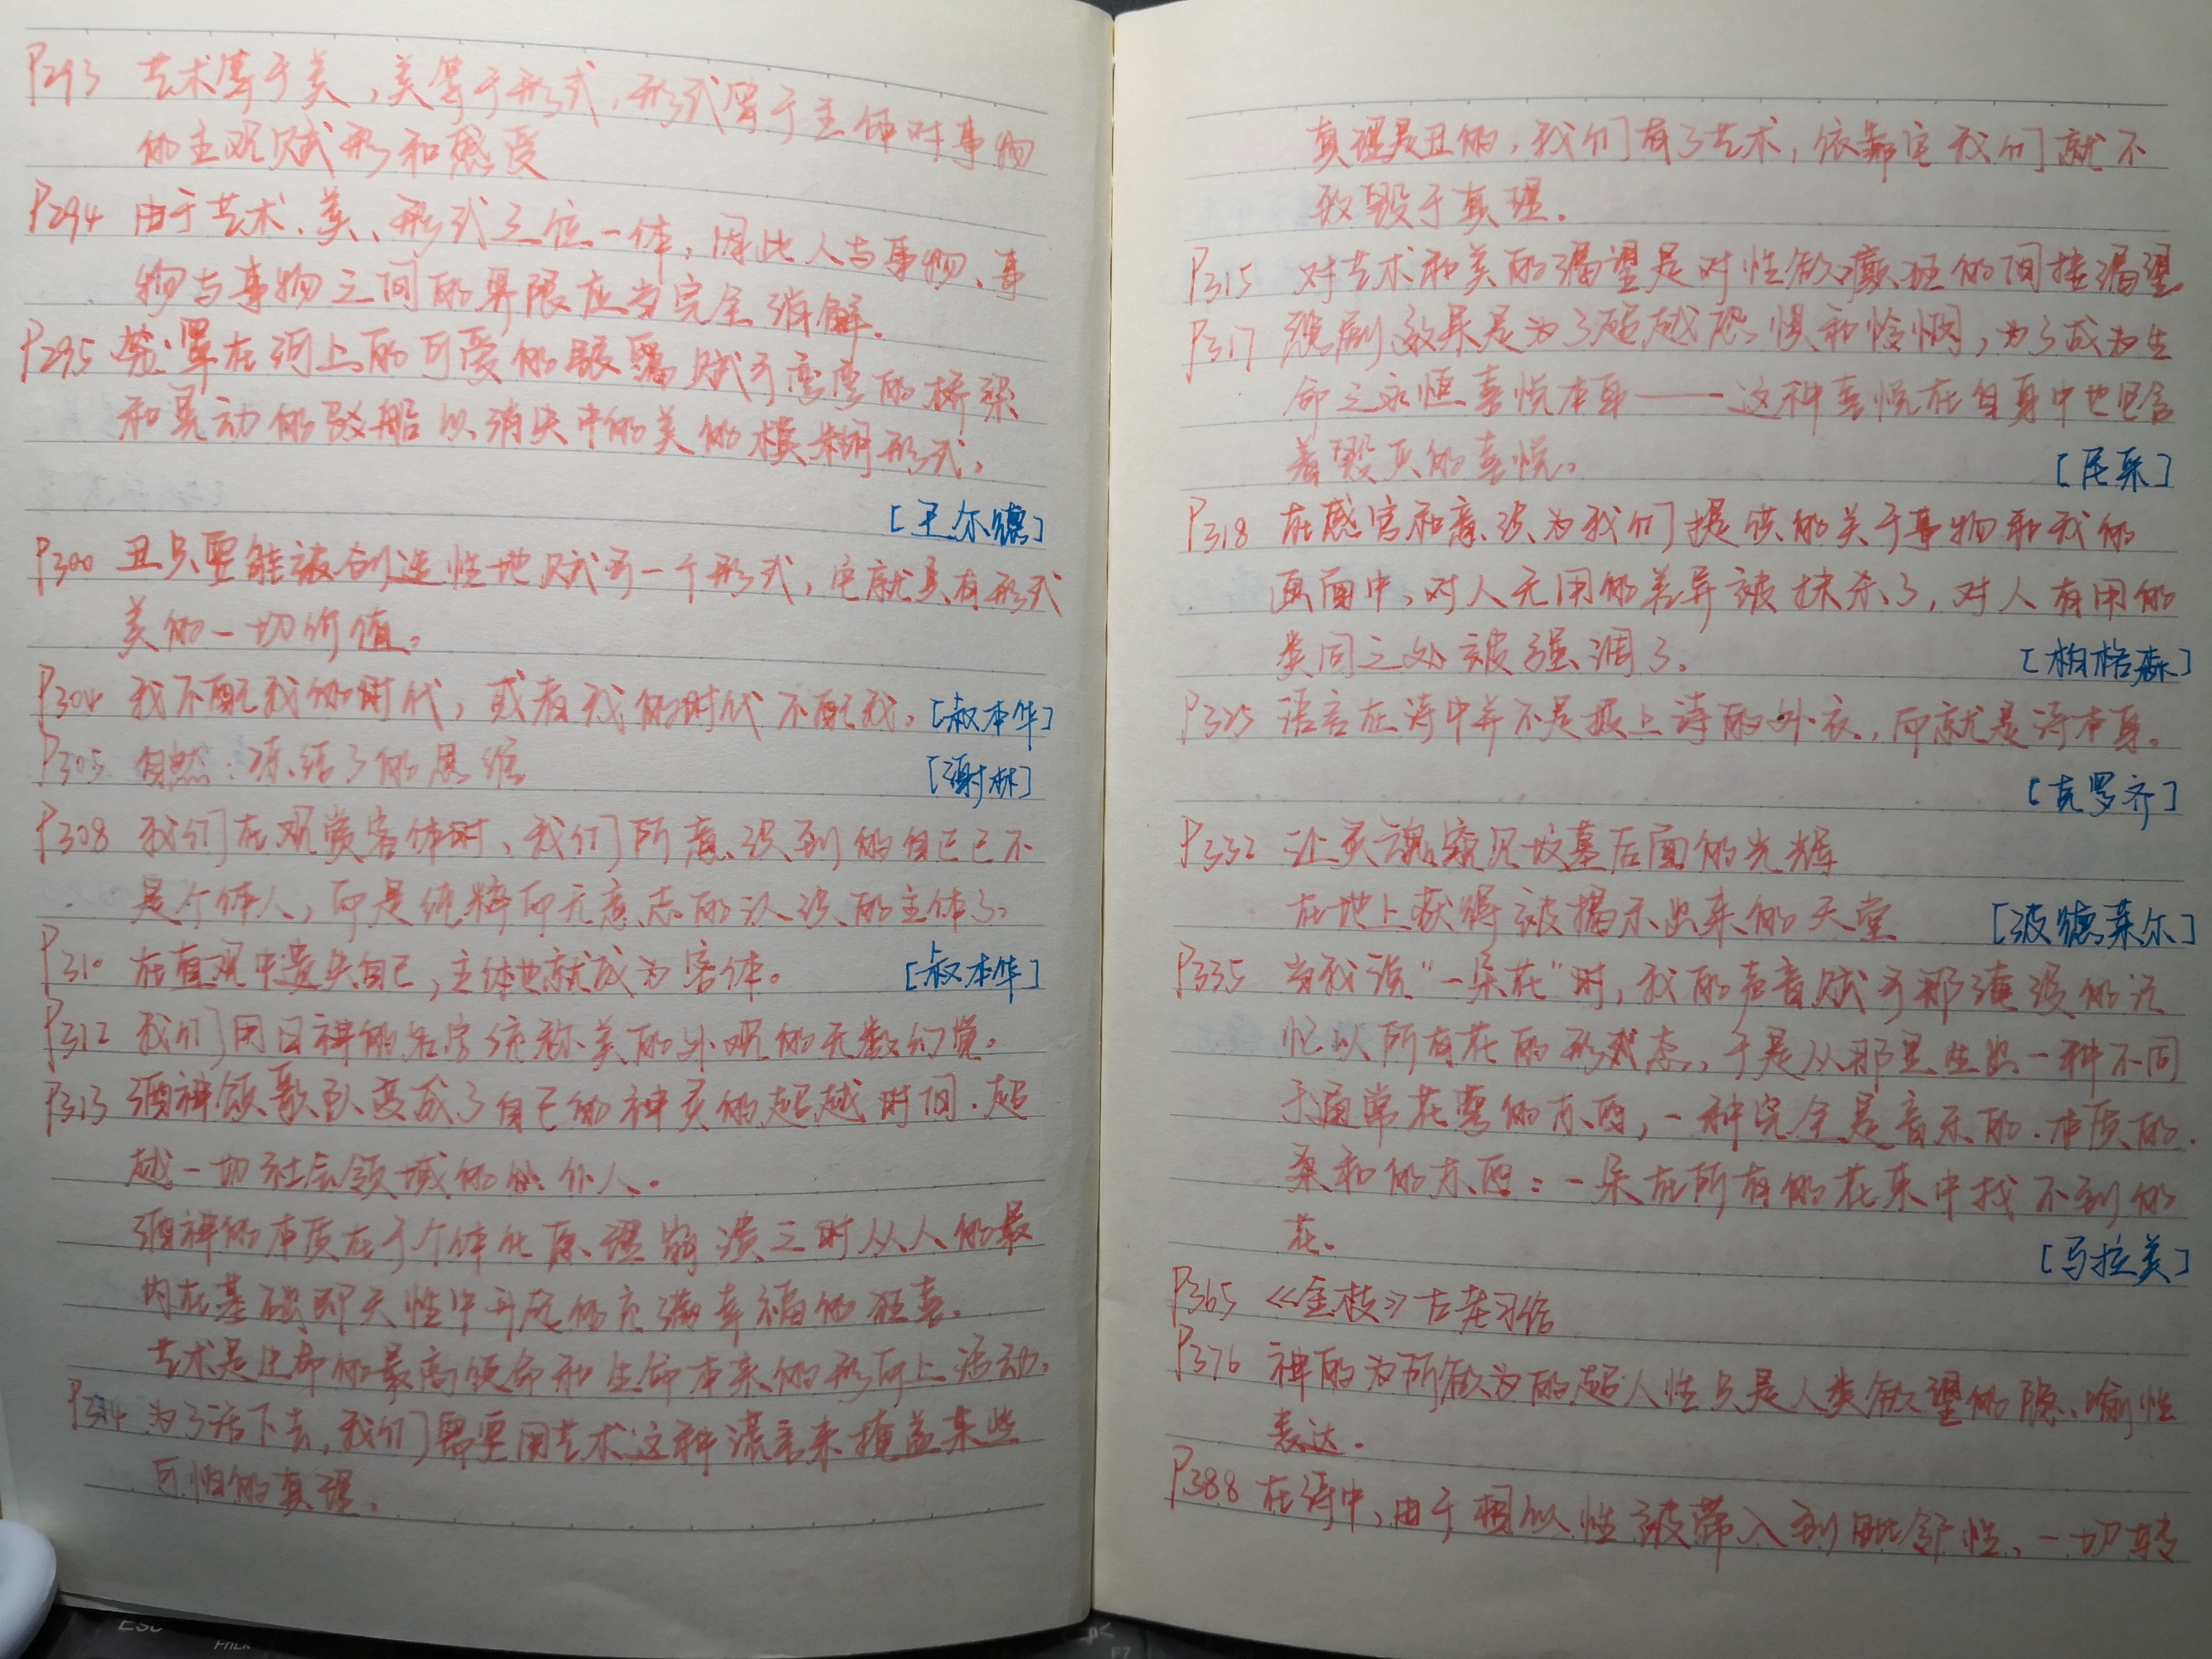 P293 艺术等于美,美等于形式,形式等于主体对事物
的主观赋形和感受
P294 由于艺术、美、形式三位一体,因此人与事物、事
物与事物之间的界限应当完全消解.
P295 笼罩在河上的可爱的银雾赋予弯弯的桥梁
和晃动的驳船以消失中的美的模糊形式。
[王尔德]
P300 丑只要能被创造性地赋予一个形式,它就具有形式
美的一切价值。
P304 我不配我的时代,或者我的时代不配我。[叔本华]
P305 自然:冻结了的思维 [谢林]
P308 我们在观赏客体时、我们所意识到的自己已不
是个体人,而是纯粹而无意志的认识的主体了。
P310 在直观中遗失自己,主体也就成为客体。 [叔本华]
P312 我们用日神的名字统称美的外观的无数幻觉。
P313 酒神颂歌队变成了自己的神灵的超越时间、超
越一切社会领域的仆人.
酒神的本质在于个体化原理崩溃之时从人的最
内在基础即天性中升起的充满幸福的狂喜.
艺术是生命的最高使命和生命本来的形而上活动.
P314 为了活下去,我们需要用艺术这种谎言来掩盖某些
可怕的真理.
真理是丑的,我们有了艺术,依靠它我们就不
致毁于真理.
P315 对艺术和美的渴望是对性欲癫狂的间接渴望
P317 悲剧效果是为了超越恐惧和怜悯,为了成为生
命之永恒喜悦本身——这种喜悦在自身中也包含
着毁灭的喜悦。 [尼采]
P318 在感官和意识为我们提供的关于事物和我的
画面中,对人无用的差异被抹杀了,对人有用的
类同之处被强调了。 [柏格森]
P325 语言在诗中并不是披上诗的外衣,而就是诗本身。
[克罗齐]
P332 让灵魂窥见坟墓后面的光辉
在地上获得被揭示出来的天堂 [波德莱尔]
P335 当我说“一朵花”时,我的声音赋予那淹没的记
忆以所有花的形态,于是从那里生出一种不同
于通常花萼的东西,一种完全是音乐的、本质的、
柔和的东西:一朵在所有的花束中找不到的
花。 [马拉美]
P365 《金枝》古老习俗
P376 神的为所欲为的超人性只是人类欲望的隐喻性
表达.
P388 在诗中,由于相似性被带入到毗邻性,一切转